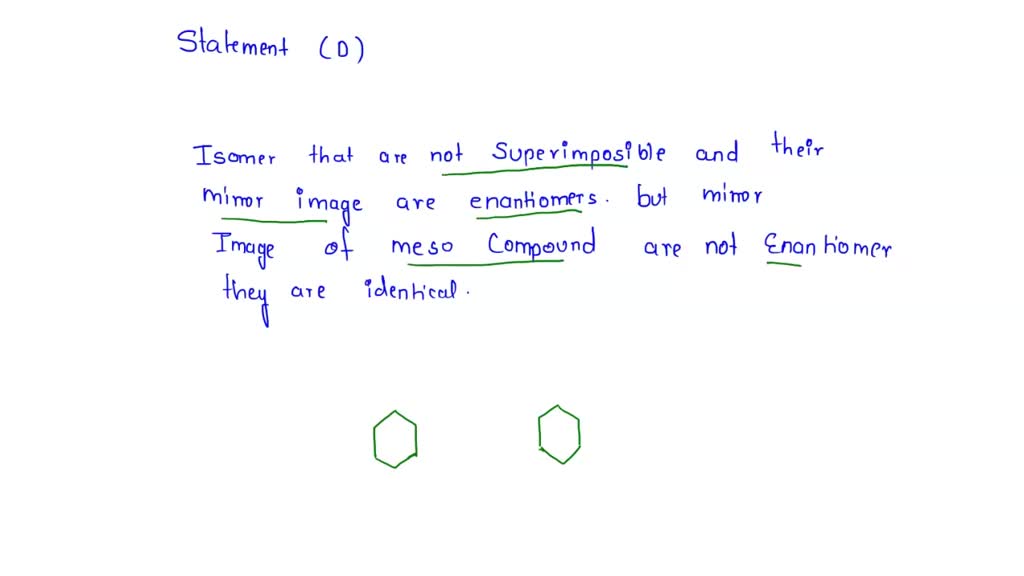 Statement (D)
Isomer that are not Superimposible and their
mirror image are enantiomers. but mirror
Image of meso Compound are not Enantiomer
they are identical.